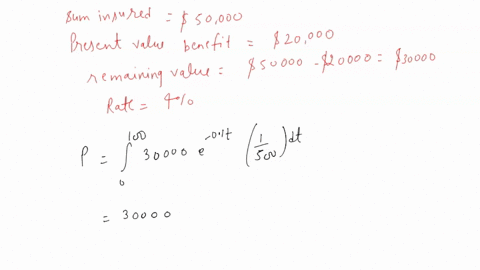 Sum insured = $50,000
Present value benefit = $20,000
remaining value = $50000 - $20000 = $30000
Rate = 4%
P = ∫₀¹⁰⁰ 30000 e^-0.1t (1/500) dt
= 30000